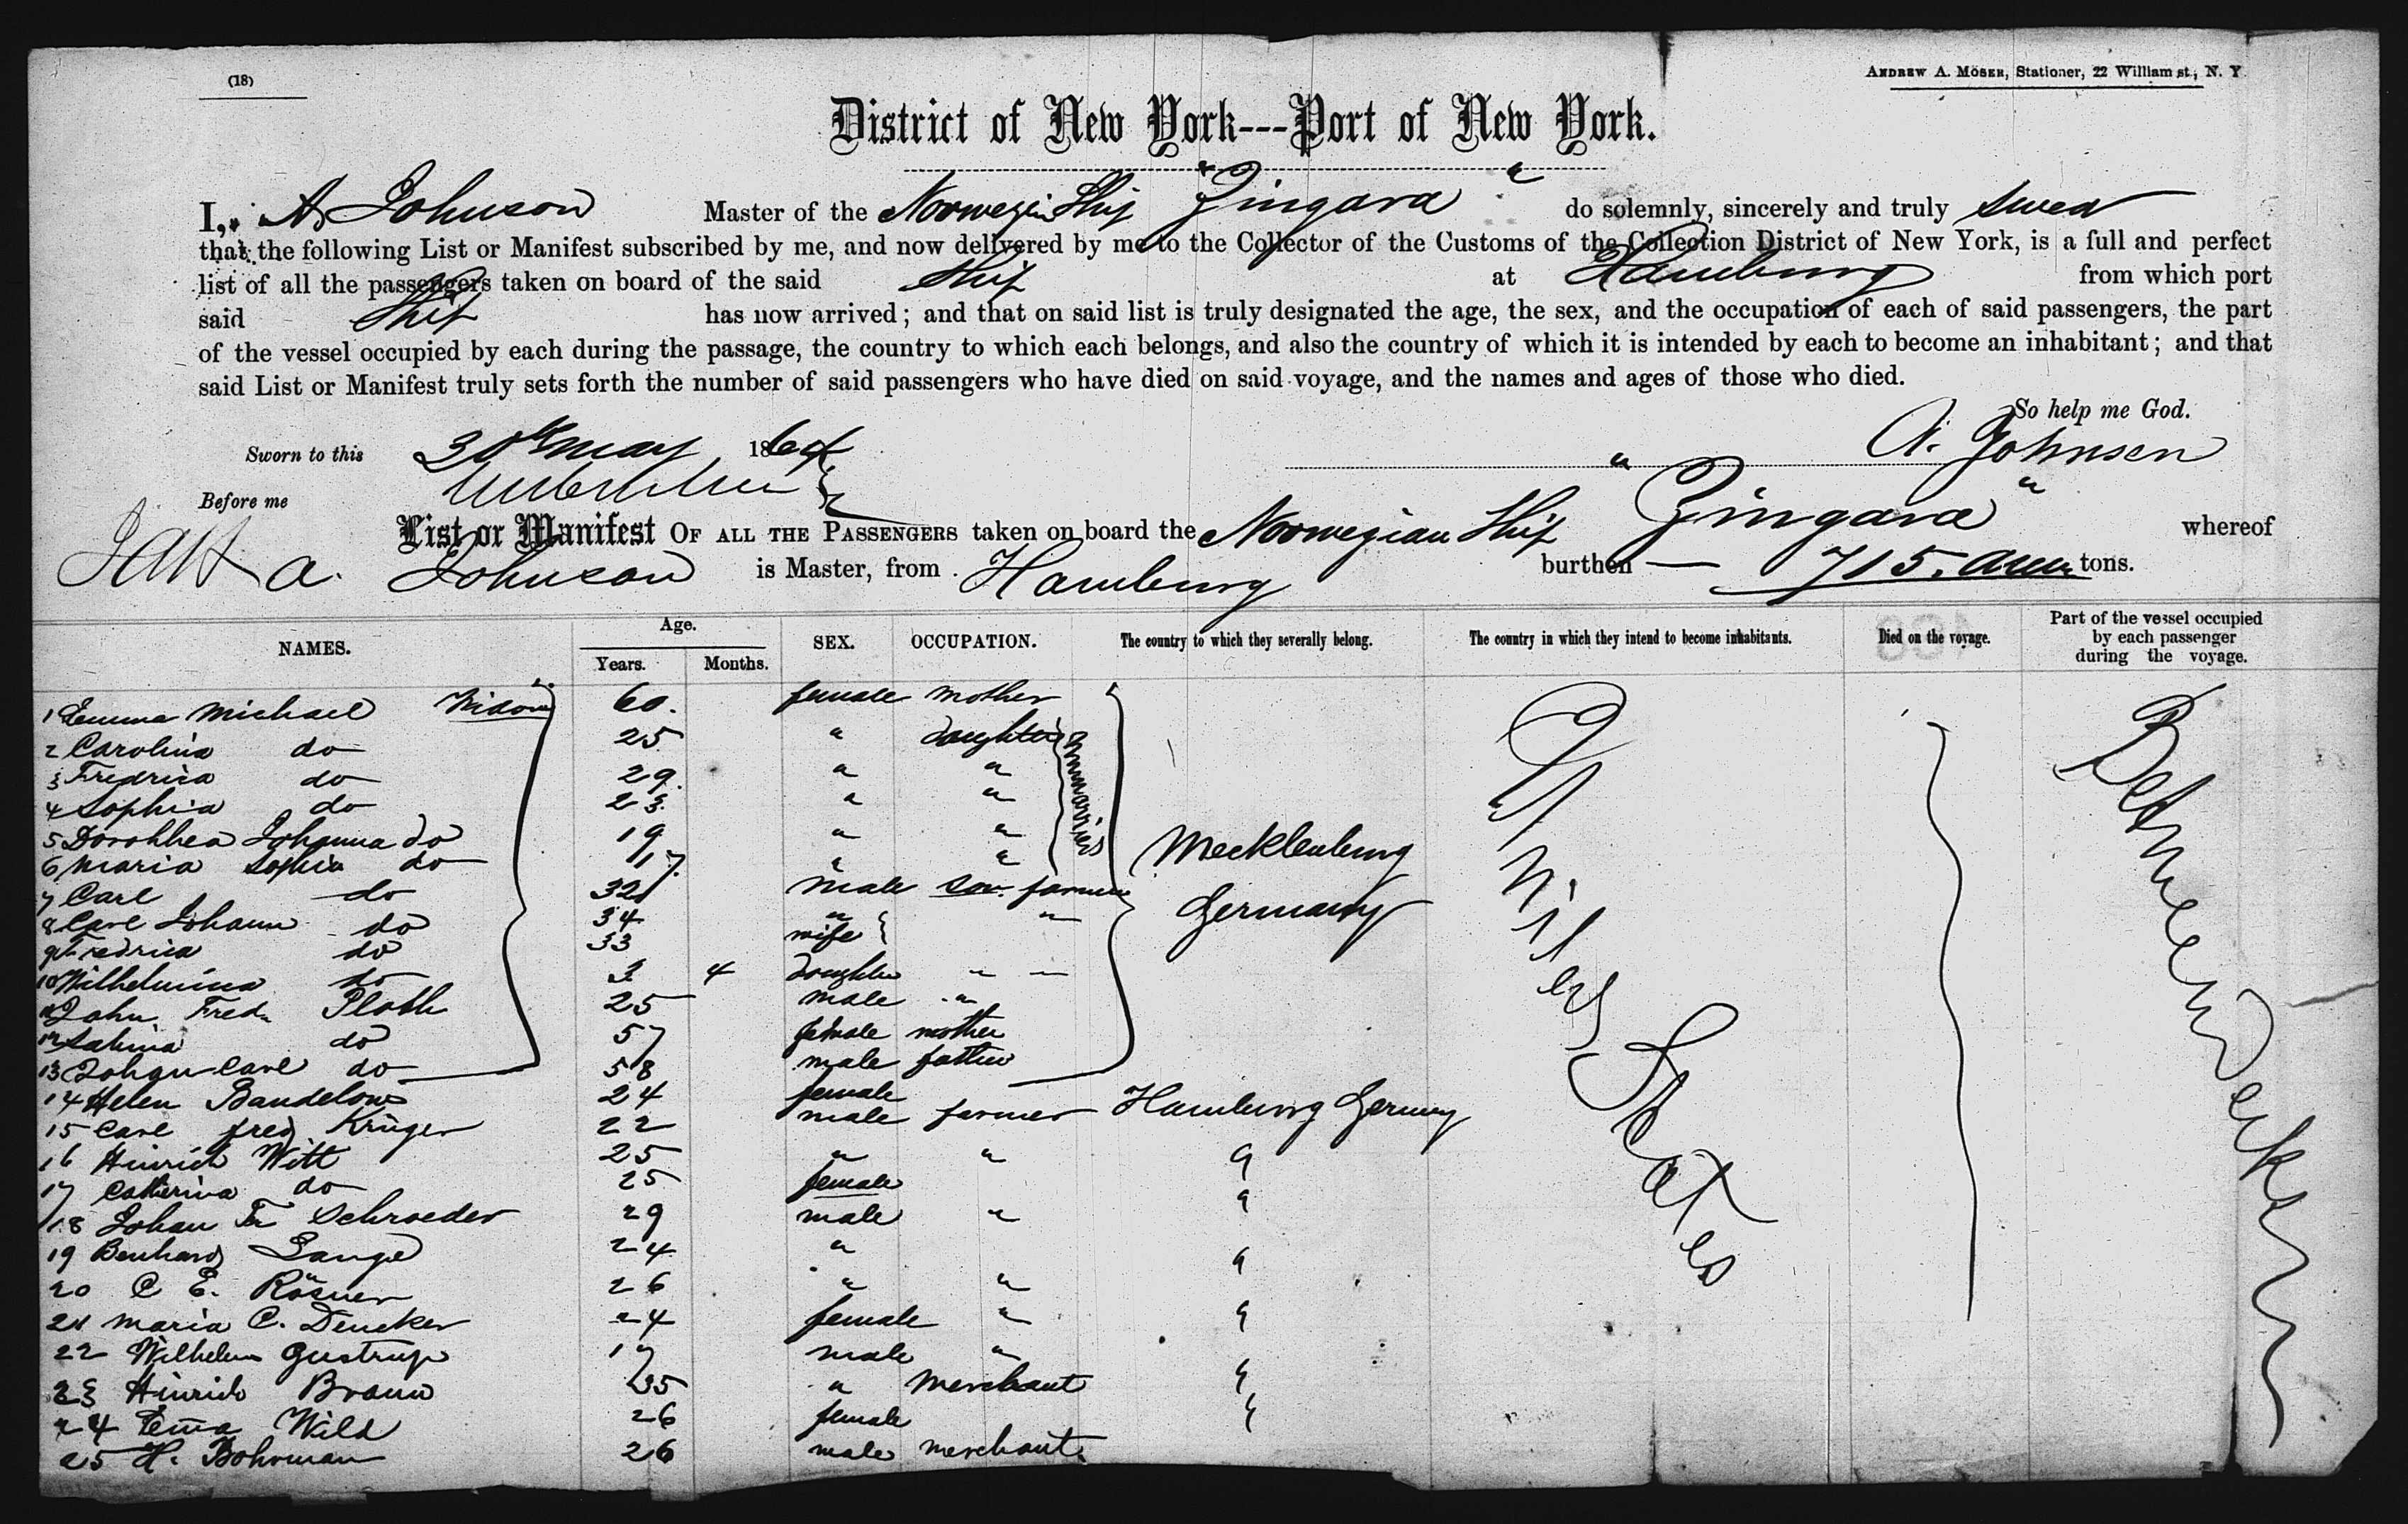 (18)
ANDREW A. MOSER, Stationer, 22 William st., N. Y.
District of New York---Port of New York.
I, A. Johnson Master of the Norwegin Ship "Zingara" do solemnly, sincerely and truly swea
that the following List or Manifest subscribed by me, and now delivered by me to the Collector of the Customs of the Collection District of New York, is a full and perfect
list of all the passengers taken on board of the said Ship at Hamburg from which port
said Ship has now arrived; and that on said list is truly designated the age, the sex, and the occupation of each of said passengers, the part
of the vessel occupied by each during the passage, the country to which each belongs, and also the country of which it is intended by each to become an inhabitant; and that
said List or Manifest truly sets forth the number of said passengers who have died on said voyage, and the names and ages of those who died.
So help me God.
Sworn to this 30th may 1864 A. Johnsen
Before me
List or Manifest OF ALL THE PASSENGERS taken on board the Norwegian Ship "Zingara" whereof
a. Johnson is Master, from Hamburg burthen — 715. tons.
NAMES. Age. Years. Months. SEX. OCCUPATION. The country to which they severally belong. The country in which they intend to become inhabitants. Died on the voyage. Part of the vessel occupied by each passenger during the voyage.
1 Emma Michael Widow 60. female mother
2 Carolina do 25 " daughter unmarried
3 Fredrica do 29. " "
4 Sophia do 23. " "
5 Dorothea Johanna do 19 " "
6 Maria Sophia do 17. " "
Mecklenburg
7 Carl do 32 male son farmer
Germany
8 Carl Johann do 34 " "
9 Fredrica do 33 wife
10 Wilhelmina do 3 4 daughter " —
11 John Fredr Ploth 25 male "
12 Sabina do 57 female mother
13 Johan Carl do 58 male father
14 Helen Bandelow 24 female
15 Carl fred Krüger 22 male farmer Hamburg Germany
16 Hinrich Witt 25 " " "
17 Catherina do 25 female "
18 Johan Fr Schroeder 29 male "
19 Benhard Lange 24 " "
20 C E. Rösner 26 " "
21 Maria C. Dencker 24 female " "
22 Wilhelm Gustrup 17 male "
23 Hinrich Braun 35 " Merchant "
24 Ema Wild 26 female "
25 H. Bohrman 26 male merchant
United States
Between Decks